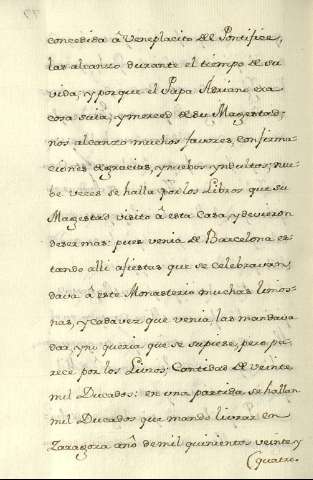 concedida â Veneplacito de Pontifice,
las alcanzo durante el tiempo de su
vida; y porque el Papa Adriano era
cosa suia, y merced de su Magestad;
nos alcanzo muchos favores, confirma
ciones de gracias, y nuebos yndultos; nue
be veces se halla por los Libros que su
Magestad visitò â esta Casa, y devieron
de ser mas: pues venia de Barcelona es
tando alli afiestas que se celebravan,
dava â este Monasterio muchas limos
nas, y cada vez que venia, las mandava
dar, y no queria que se supiese, pero pa
rece por los Livros, Cantidad de veinte
mil Ducados: en una partida se hallan
mil Ducados que mando librar en
Zaragoza año de mil quinientos veinte y
(quatro.